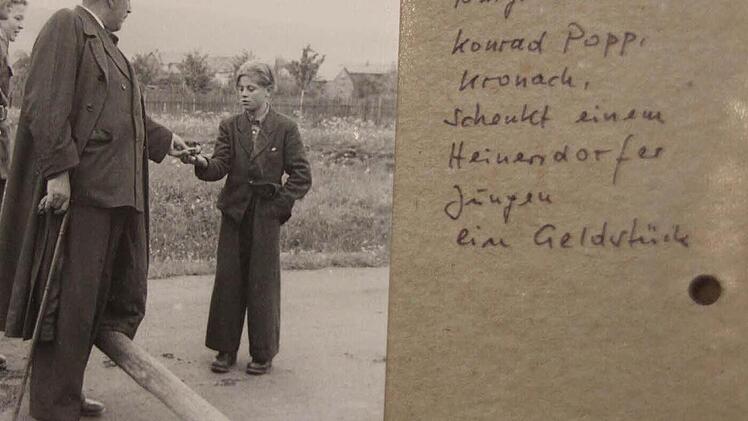 Konrad Popp,
Kronach,
schenkt einem
Heinersdorfer
Jungen
ein Geldstück